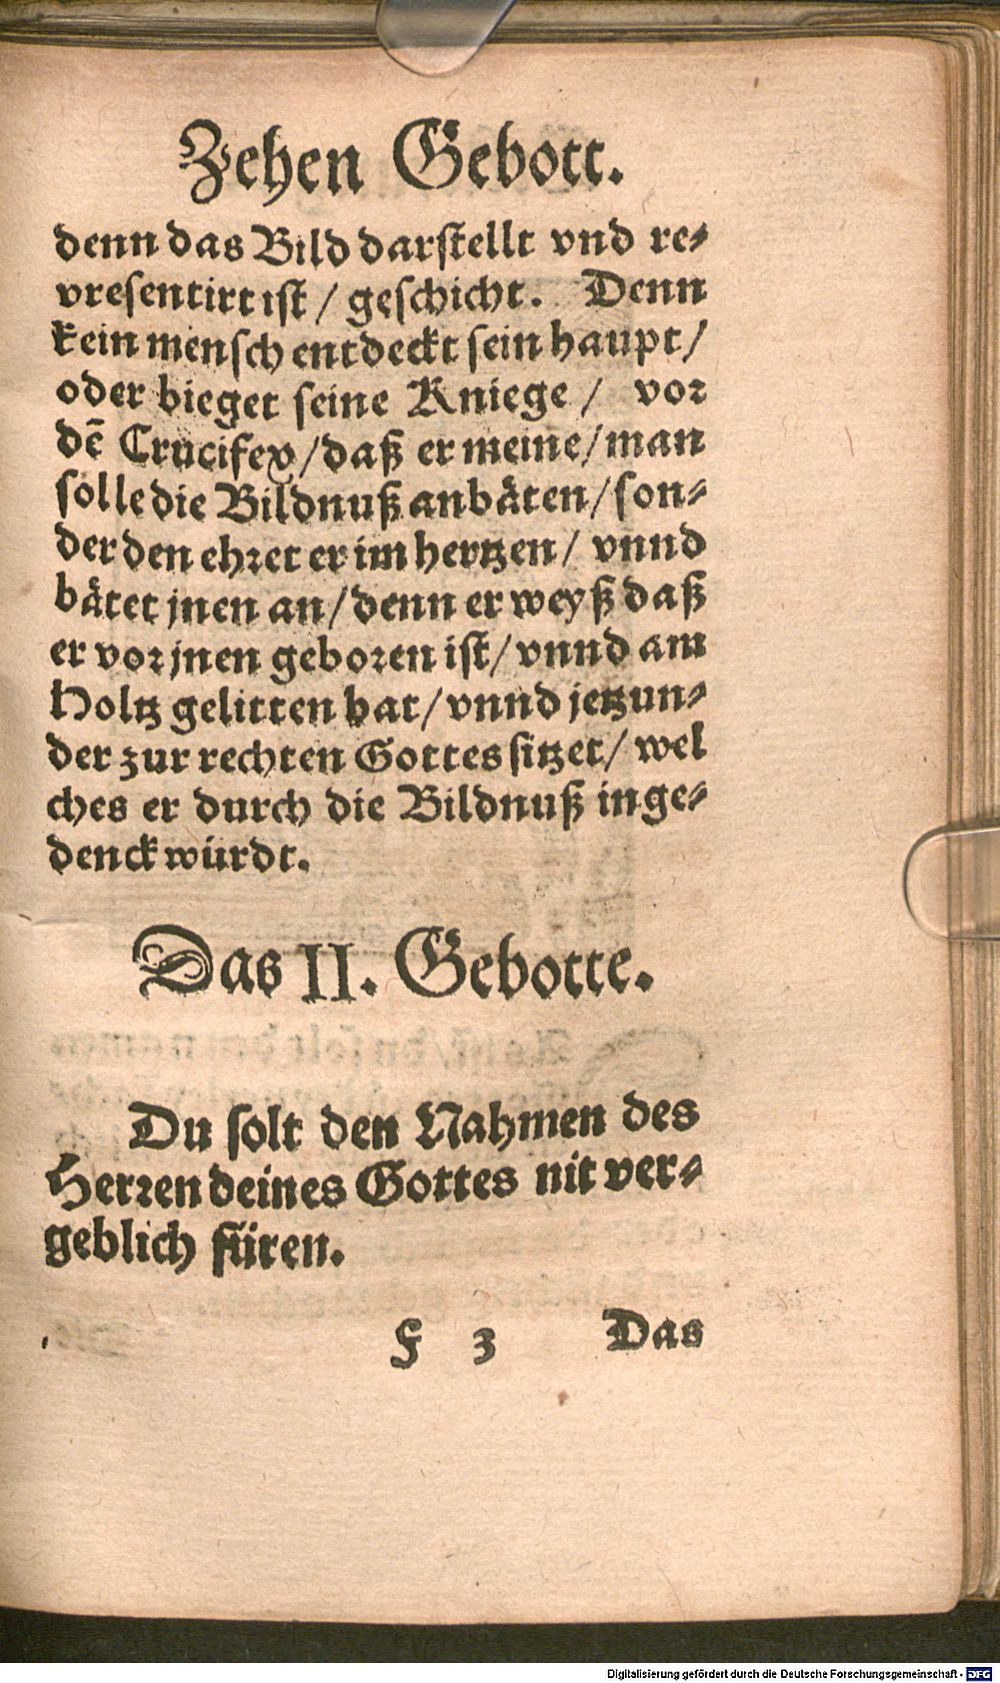 Zehen Gebott.
denn das Bild darstellt vnd re⸗
presentirt ist / geschicht. Denn
kein mensch entdeckt sein haupt /
oder bieget seine Kniege / vor
dē Crucifex / daß er meine / man
solle die Bildnuß anbäten / son⸗
der den ehret er im hertzen / vnnd
bätet jnen an / denn er weyß daß
er vor jnen geboren ist / vnnd am
Holtz gelitten hat / vnnd jetzun⸗
der zur rechten Gottes sitzet / wel
ches er durch die Bildnuß inge⸗
denck würdt.
Das II. Gebotte.
Du solt den Nahmen des
Herren deines Gottes nit ver⸗
geblich füren.
F 3 Das
Digitalisierung gefördert durch die Deutsche Forschungsgemeinschaft - DFG